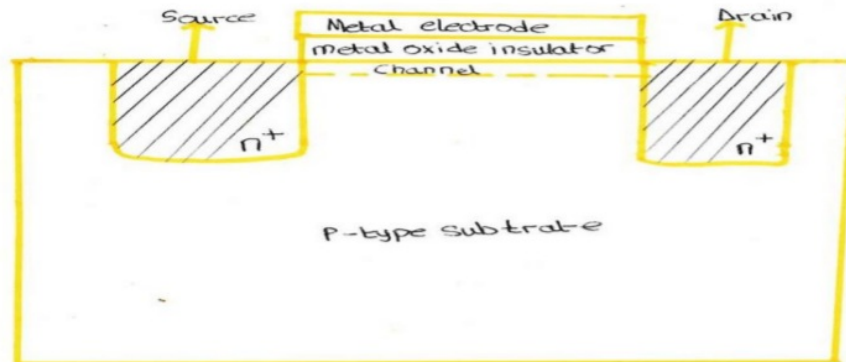 Source
Metal electrode
Drain
metal oxide insulator
Channel
n+
n+
P-type subtrate